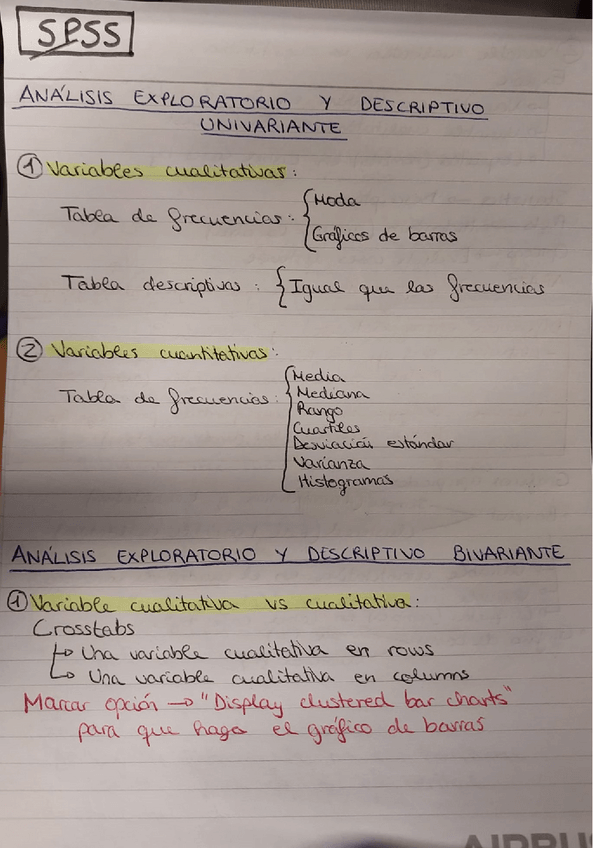 SPSS
ANÁLISIS EXPLORATORIO Y DESCRIPTIVO
UNIVARIANTE
① Variables cualitativas:
Tabla de frecuencias: { Moda
Gráficos de barras
Tabla descriptivos: { Igual que las frecuencias
② Variables cuantitativas:
Tabla de frecuencias: { Media
Mediana
Rango
Cuartiles
Desviación estándar
Varianza
Histogramas
ANÁLISIS EXPLORATORIO Y DESCRIPTIVO BIVARIANTE
① Variable cualitativa vs cualitativa:
Crosstabs
↳ Una variable cualitativa en rows
↳ Una variable cualitativa en columns
Marcar opción → "Display clustered bar charts"
para que haga el gráfico de barras